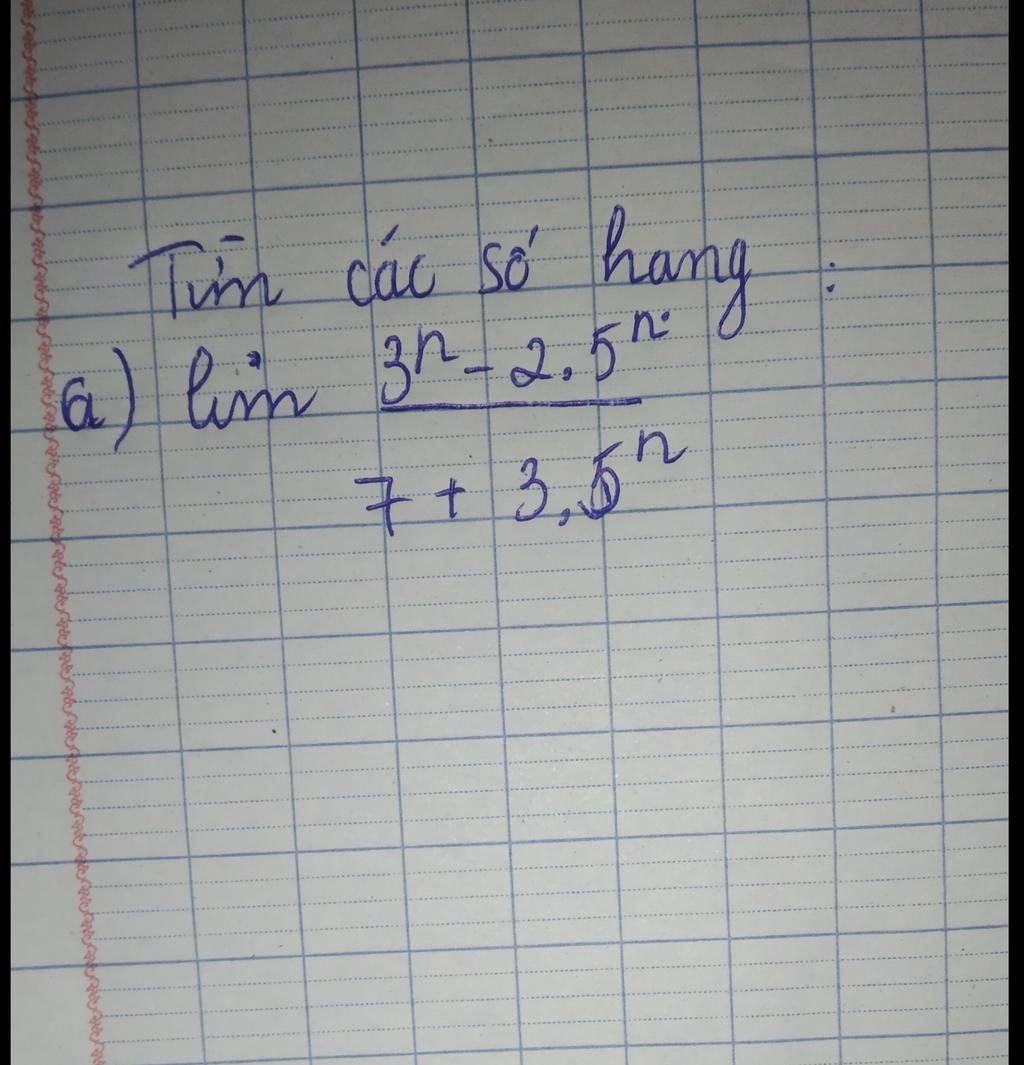 Tìm các số hang :
a) lim 3^n - 2.5^n
7 + 3.5^n